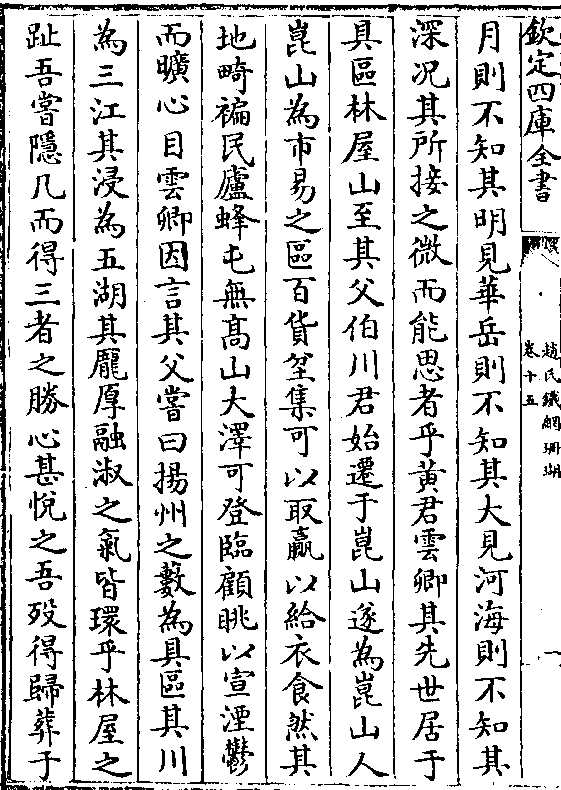 欽定四庫全書
趙氏鐵網珊瑚
卷十五
一
月則不知其明見華岳則不知其大見河海則不知其
深況其所接之微而能思者乎黃君雲卿其先世居于
具區林屋山至其父伯川君始遷于崑山遂為崑山人
崑山為市易之區百貨坌集可以取贏以給衣食然其
地畸褊民廬蜂屯無髙山大澤可登臨顧眺以宣湮鬱
而曠心目雲卿因言其父嘗曰揚州之藪為具區其川
為三江其浸為五湖其龎厚融淑之氣皆環乎林屋之
趾吾嘗隱几而得三者之勝心甚悅之吾歿得歸葬于